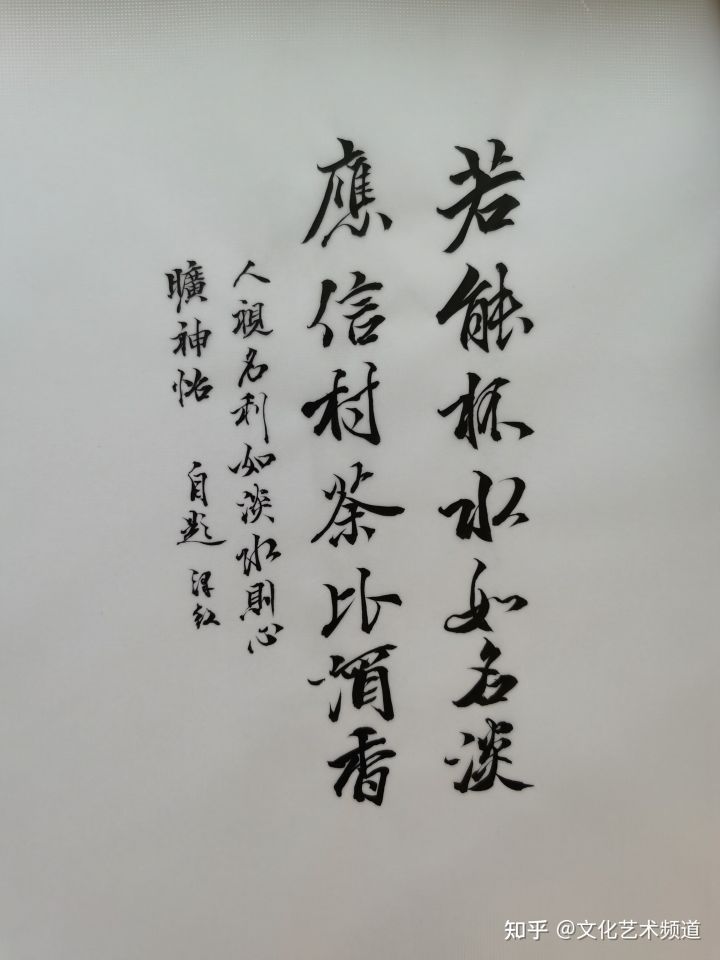 若能杯水如名淡
應信村茶比酒香
人視名利如淡水則心
曠神怡 自題 澤紅
知乎 @文化艺术频道